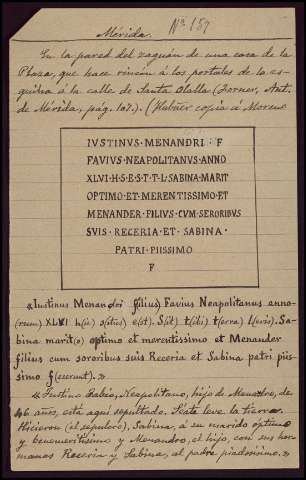 Mérida. Nº 157
En la pared del zaguán de una casa de la
Plaza, que hace rincón á los portales de la es-
quina á la calle de Santa Olalla (Forner, Ant.
de Mérida, pág. 107.). (Hübner copia á Moreno
IVSTINVS·MENANDRI·F
FAVIVS·NEAPOLITANVS·ANNO
XLVI·H·S·E·S·T·T·L·SABINA·MARIT
OPTIMO·ET·MERENTISSIMO·ET
MENANDER·FILIVS·CVM·SERORIBVS
SVIS·RECERIA·ET·SABINA·
PATRI·PIISSIMO
F
«Iustinus Menandri f(ilius) Favius Neapolitanus anno-
(rum) XLVI h(ic) s(itus) e(st). S(it) t(ibi) t(erra) l(evis). Sa-
bina marit(o) optimo et merentissimo et Menander
filius cum sororibus suis Receria et Sabina patri piis-
simo f(ecerunt).»
«Justino Fabio, Neapolitano, hijo de Menandro, de
46 años, está aquí sepultado. Séate leve la tierra.
Hicieron (el sepulcro), Sabina, á su marido optimo
y benemeritissimo y Menandro, el hijo, con sus her-
manas Receria y Sabina, al padre piadosísimo.»